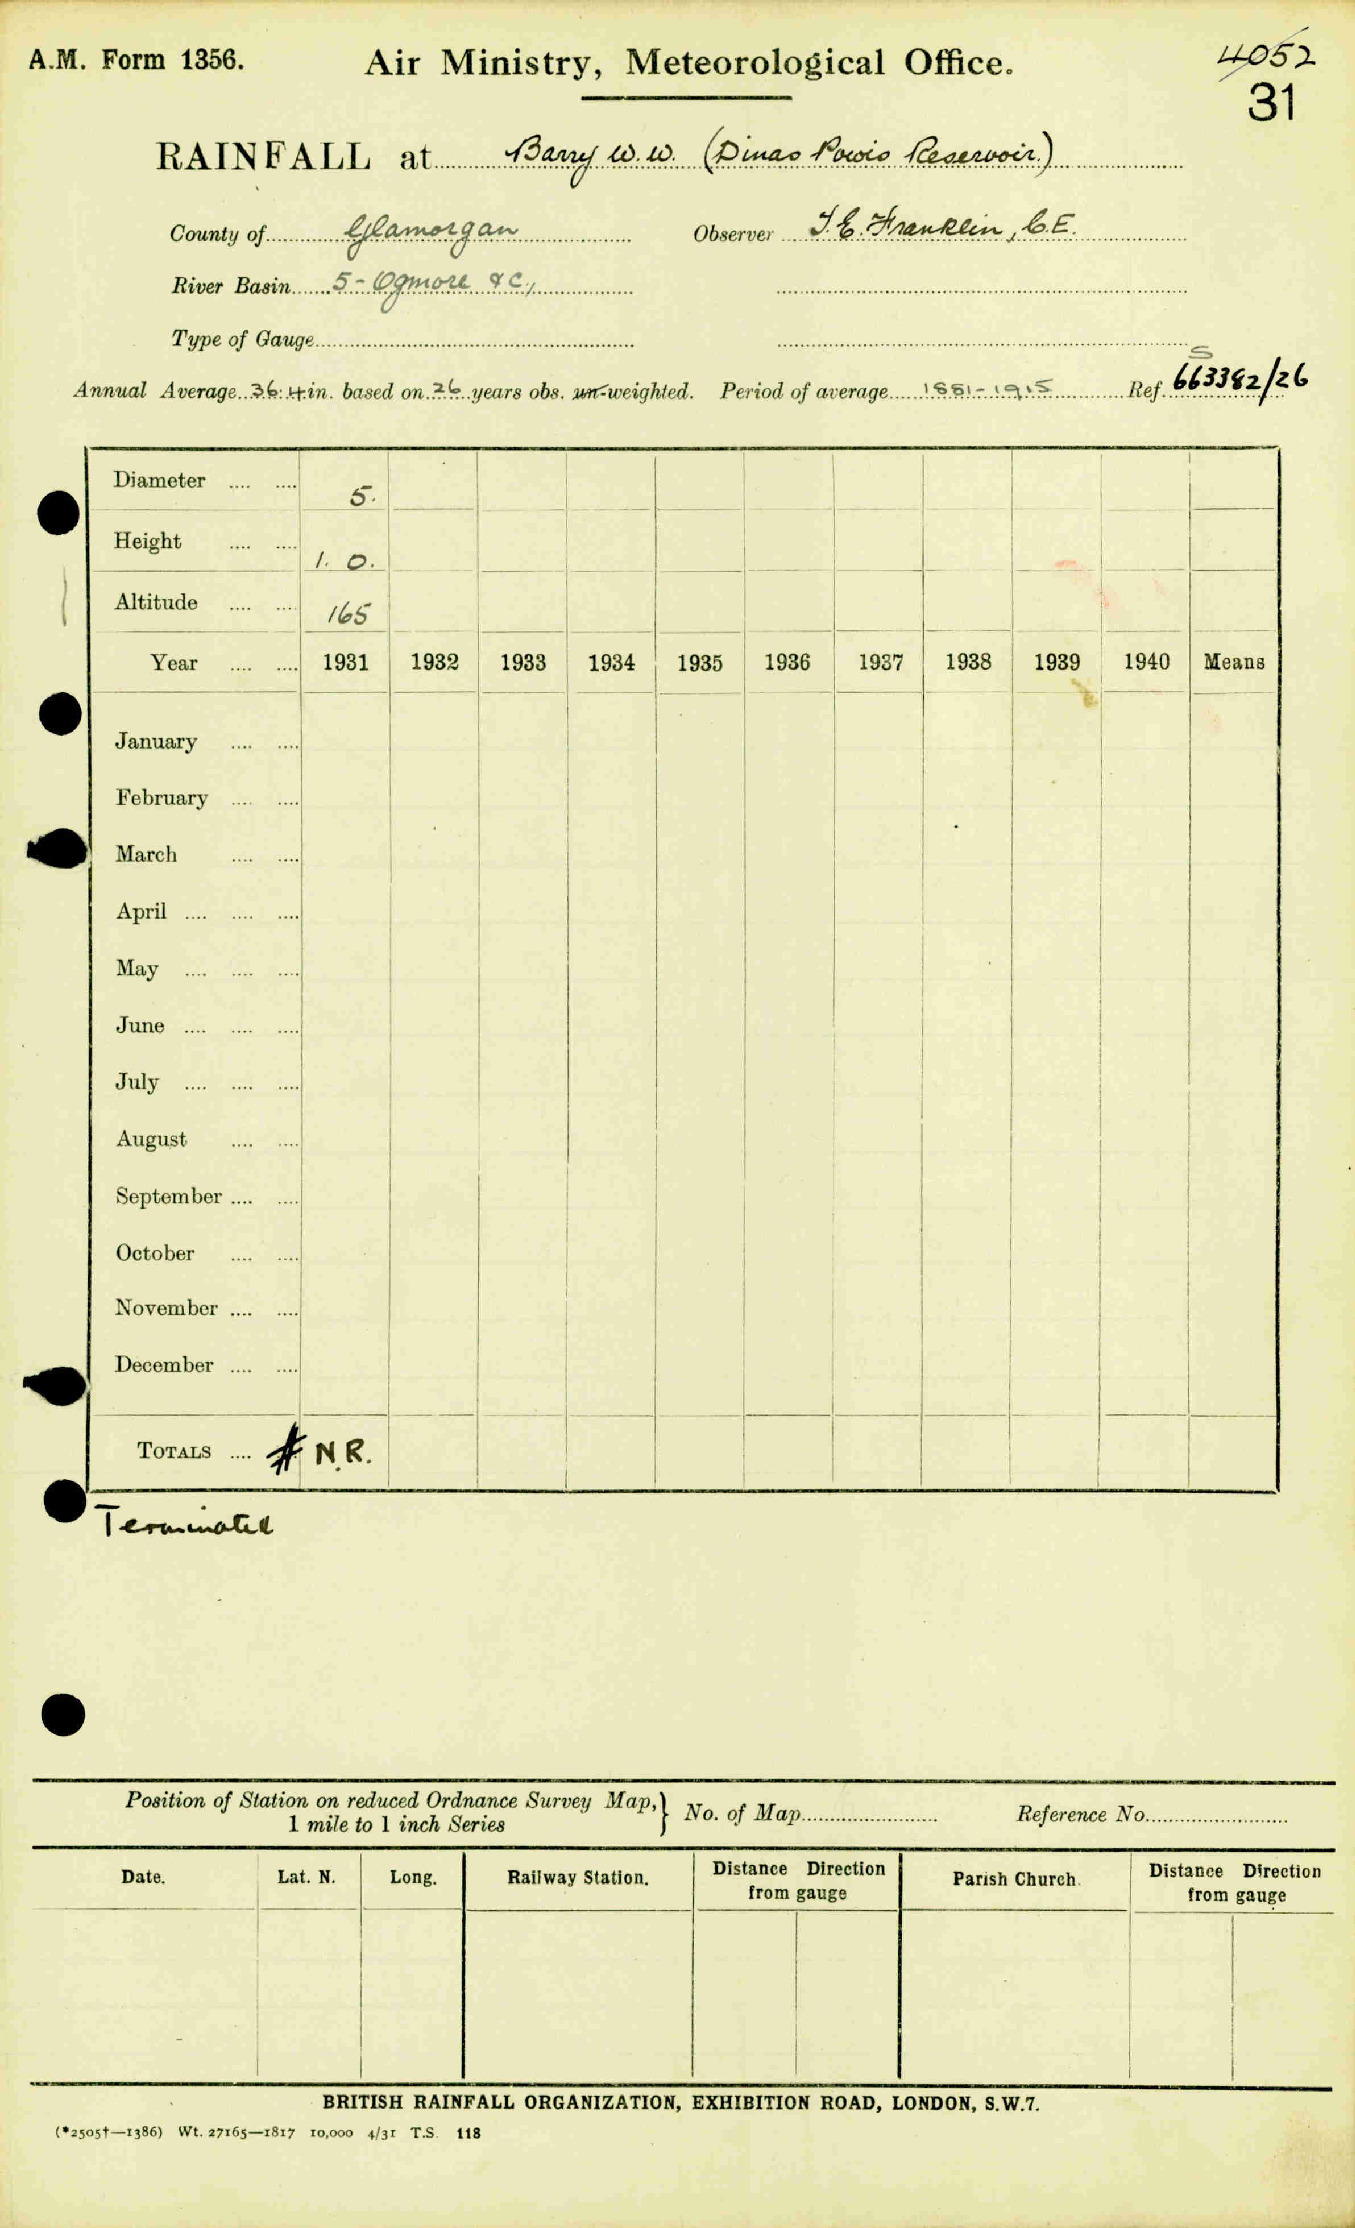 A.M. Form 1356.
Air Ministry, Meteorological Office.
4052
31
RAINFALL at Barry W.W. (Dinas Powis Reservoir.)
County of Glamorgan Observer T.E. Franklin, C.E.
River Basin 5 - Ogmore &c.,
Type of Gauge
Annual Average 36.4 in. based on 26 years obs. un-weighted. Period of average 1881-1915 Ref. 663382/26
S
Diameter .... .... 5.
Height .... .... 1. 0.
Altitude .... .... 165
Year .... .... 1931 1932 1933 1934 1935 1936 1937 1938 1939 1940 Means
January .... ....
February .... ....
March .... ....
April .... .... ....
May .... .... ....
June .... .... ....
July .... .... ....
August .... ....
September .... ....
October .... ....
November .... ....
December .... ....
TOTALS .... # N.R.
Terminated
Position of Station on reduced Ordnance Survey Map, } No. of Map Reference No.
1 mile to 1 inch Series
Date. Lat. N. Long. Railway Station. Distance Direction from gauge Parish Church. Distance Direction from gauge
BRITISH RAINFALL ORGANIZATION, EXHIBITION ROAD, LONDON, S.W.7.
(*2505†—1386) Wt. 27165—1817 10,000 4/31 T.S. 118